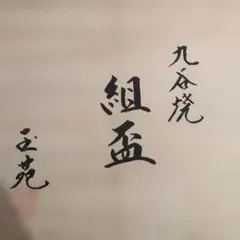 九谷焼
組盃
玉苑